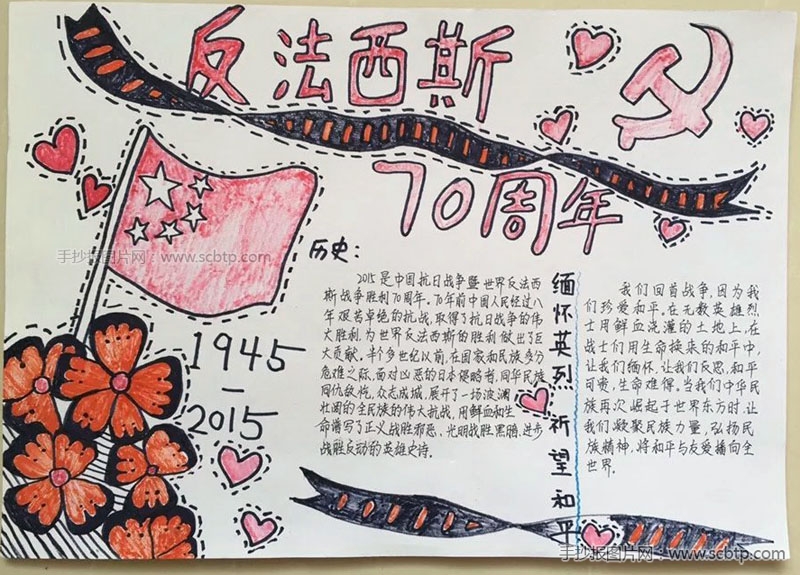 反法西斯
70周年
手抄报图片网:www.scbtp.com
历史:
1945
—
2015
2015是中国抗日战争暨世界反法西
斯战争胜利70周年。70年前中国人民经过八
年艰苦卓绝的抗战,取得了抗日战争的伟
大胜利,为世界反法西斯的胜利做出了巨
大贡献。半个多世纪以前,在国家和民族多分
危难之际,面对凶恶的日本侵略者,同华民族
同仇敌忾,众志成城,展开了一场波澜
壮阔的全民族的伟大抗战,用鲜血和生
命谱写了正义战胜邪恶、光明战胜黑暗、进步
战胜反动的英雄史诗。
缅怀英烈 祈望和平
我们回首战争,因为我
们珍爱和平。在无数英雄烈
士用鲜血浇灌的土地上,在
战士们用生命换来的和平中,
让我们缅怀,让我们反思,和平
可贵,生命难得。当我们中华民
族再次崛起于世界东方时,让
我们凝聚民族力量,弘扬民
族精神,将和平与友爱播向全
世界。
手抄报图片网:www.scbtp.com